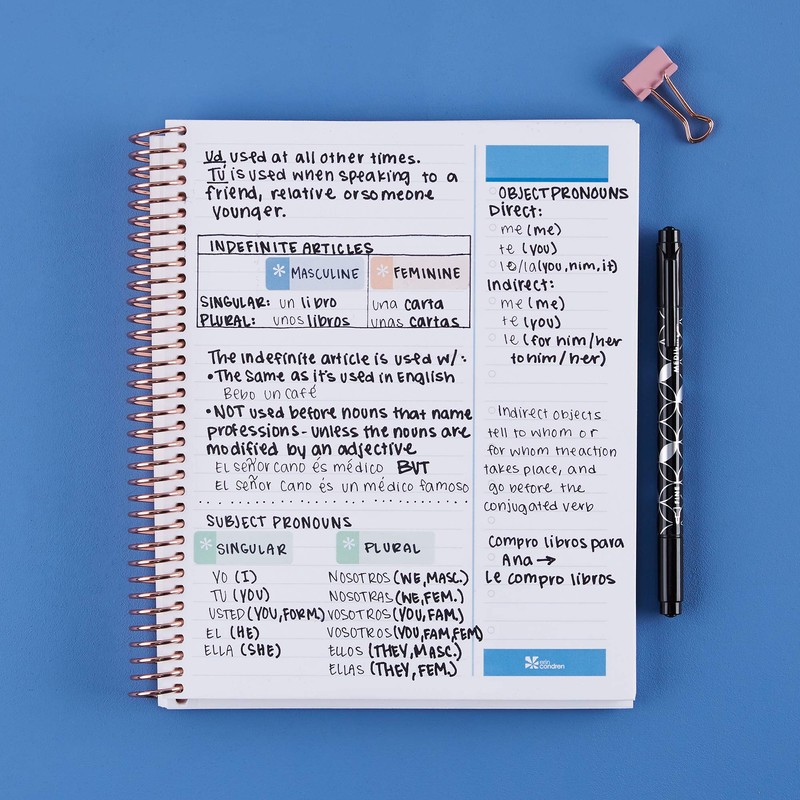 Ud used at all other times.
Tú is used when speaking to a
friend, relative or someone
younger.
INDEFINITE ARTICLES
* MASCULINE * FEMININE
SINGULAR: un libro una carta
PLURAL: unos libros unas cartas
The indefinite article is used w/:
• The same as it's used in English
Bebo un café
• NOT used before nouns that name
professions - unless the nouns are
modified by an adjective
El señor Cano és médico BUT
El señor Cano és un médico famoso
SUBJECT PRONOUNS
* SINGULAR * PLURAL
YO (I) NOSOTROS (WE, MASC.)
TU (YOU) NOSOTRAS (WE, FEM.)
USTED (YOU, FORM) VOSOTROS (YOU, FAM.)
EL (HE) VOSOTROS (YOU, FAM, FEM)
ELLA (SHE) ELLOS (THEY, MASC.)
ELLAS (THEY, FEM.)
OBJECT PRONOUNS
Direct:
me (me)
te (you)
lo/la (you, him, it)
Indirect:
me (me)
te (you)
le (for him/her
to him/her)
Indirect objects
tell to whom or
for whom the action
takes place, and
go before the
conjugated verb
Compro libros para
Ana →
Le compro libros
erin
condren